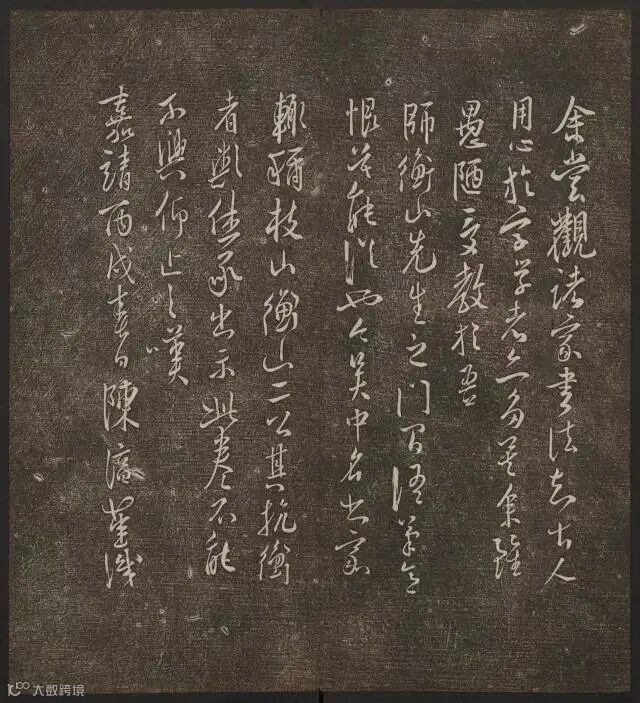 余嘗觀諸家書法知古人
用心於字学者亦多矣余雖
愚陋受教於吾
師衡山先生之門
恨莫能從也今吴中名書家
輒稱枝山衡山二公其抗衡
者歟出示此卷不能
不興仰止之嘆
嘉靖丙戌春日陳謹識
大数跨境